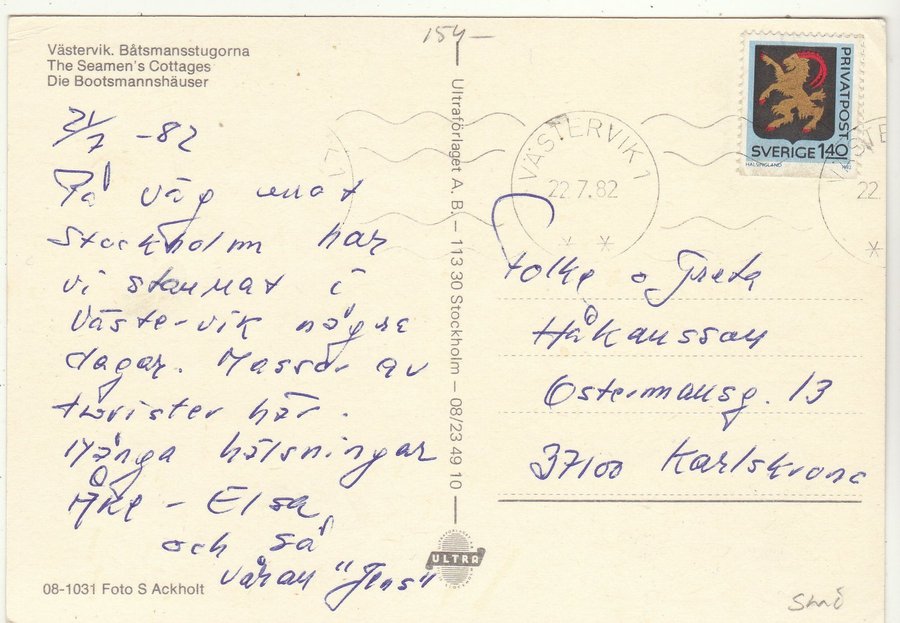 154-
Västervik. Båtsmansstugorna
The Seamen's Cottages
Die Bootsmannshäuser
21/7 -82
På väg mot
Stockholm har
vi stannat i
Västervik några
dagar. Massor av
turister här.
Många hälsningar
Åke - Elsa
och så
våran "Jens"
08-1031 Foto S Ackholt
Ultraförlaget A. B. – 113 30 Stockholm – 08/23 49 10
ULTRA
VÄSTERVIK 1
22.7.82
PRIVATPOST
SVERIGE 1.40
22.
Folke o Greta
Håkansson
Östermansg. 13
37100 Karlskrona
Små